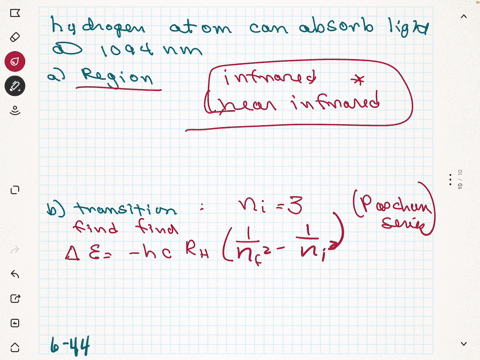 hydrogen atom can absorb light
@ 1094 nm
a) Region
infrared *
(near infrared
b) transition : ni = 3 (Paschen series)
find find
ΔE = -hc RH (1/nf² - 1/ni²)
6-44
10 / 10